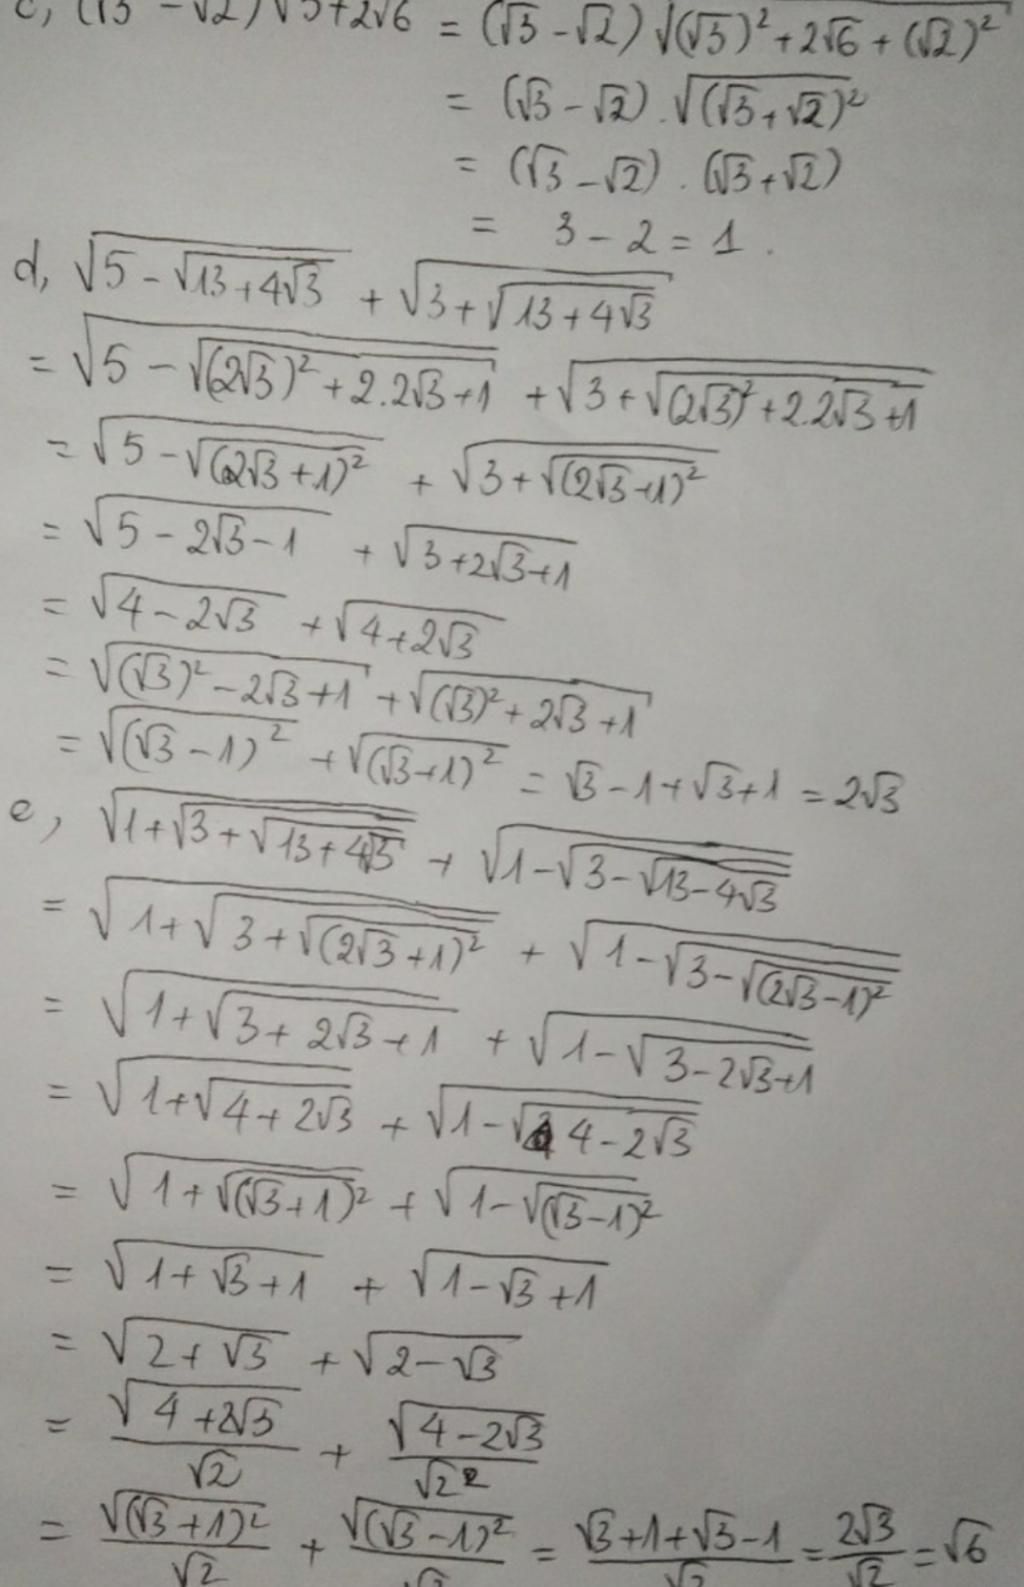 c, (√3 - √2)√5+2√6 = (√3 - √2) √((√3)² + 2√6 + (√2)²)
= (√3 - √2) . √((√3 + √2)²)
= (√3 - √2) . (√3 + √2)
= 3 - 2 = 1 .
d, √(5 - √(13 + 4√3)) + √(3 + √(13 + 4√3))
= √(5 - √((2√3)² + 2.2√3 + 1)) + √(3 + √((2√3)² + 2.2√3 + 1))
= √(5 - √((2√3 + 1)²)) + √(3 + √((2√3 + 1)²))
= √(5 - 2√3 - 1) + √(3 + 2√3 + 1)
= √(4 - 2√3) + √(4 + 2√3)
= √((√3)² - 2√3 + 1) + √((√3)² + 2√3 + 1)
= √((√3 - 1)²) + √((√3 + 1)²) = √3 - 1 + √3 + 1 = 2√3
e, √(1 + √(3 + √(13 + 4√3))) + √(1 - √(3 - √(13 - 4√3)))
= √(1 + √(3 + √((2√3 + 1)²))) + √(1 - √(3 - √((2√3 - 1)²)))
= √(1 + √(3 + 2√3 + 1)) + √(1 - √(3 - 2√3 + 1))
= √(1 + √(4 + 2√3)) + √(1 - √(4 - 2√3))
= √(1 + √((√3 + 1)²)) + √(1 - √((√3 - 1)²))
= √(1 + √3 + 1) + √(1 - √3 + 1)
= √(2 + √3) + √(2 - √3)
= √(4 + 2√3)/√2 + √(4 - 2√3)/√2
= √((√3 + 1)²)/√2 + √((√3 - 1)²)/√2 = (√3 + 1 + √3 - 1)/√2 = 2√3/√2 = √6